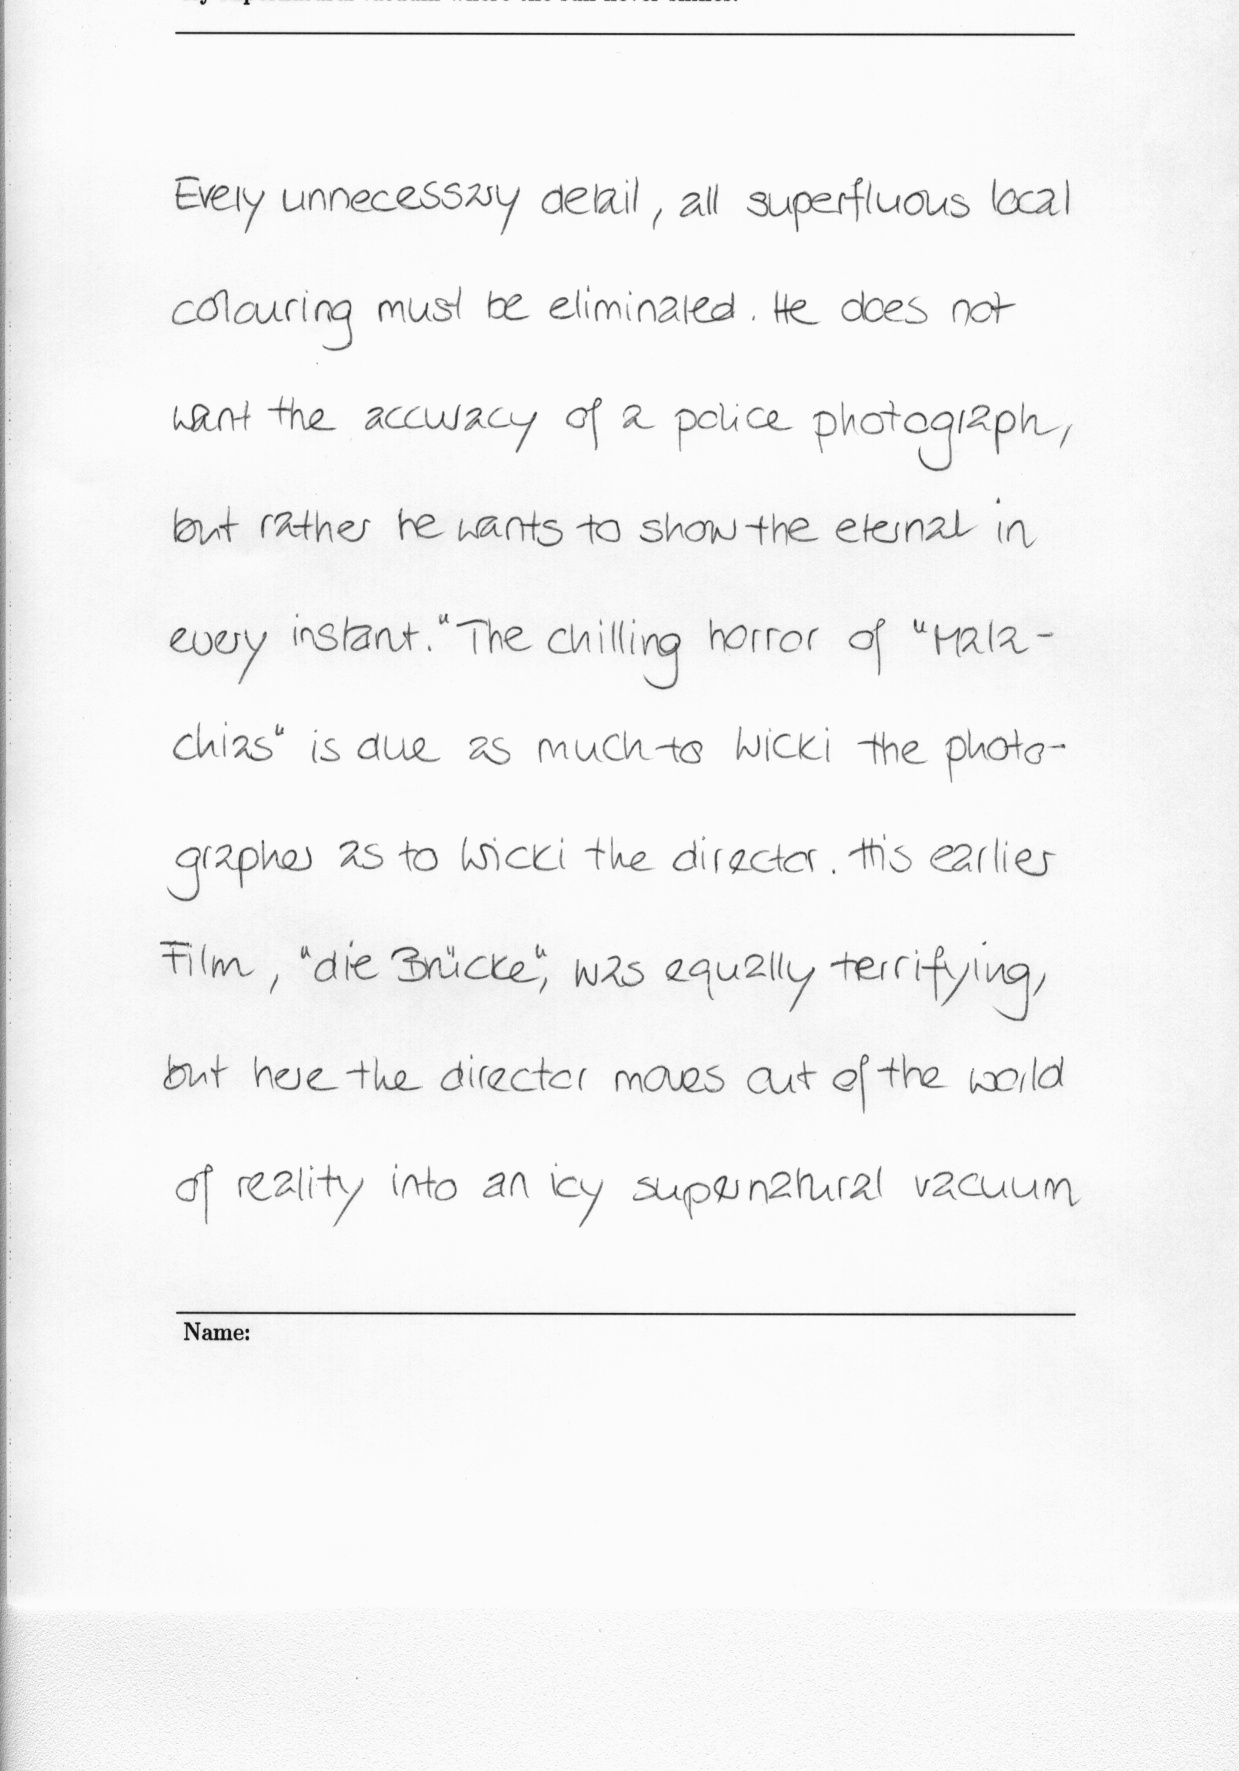 Every unnecessary detail, all superfluous local
colouring must be eliminated. He does not
want the accuracy of a police photograph,
but rather he wants to show the eternal in
every instant." The chilling horror of "Mala-
chias" is due as much to Wicki the photo-
grapher as to Wicki the director. His earlier
Film, "die Brücke", was equally terrifying,
but here the director moves out of the world
of reality into an icy supernatural vacuum
Name: